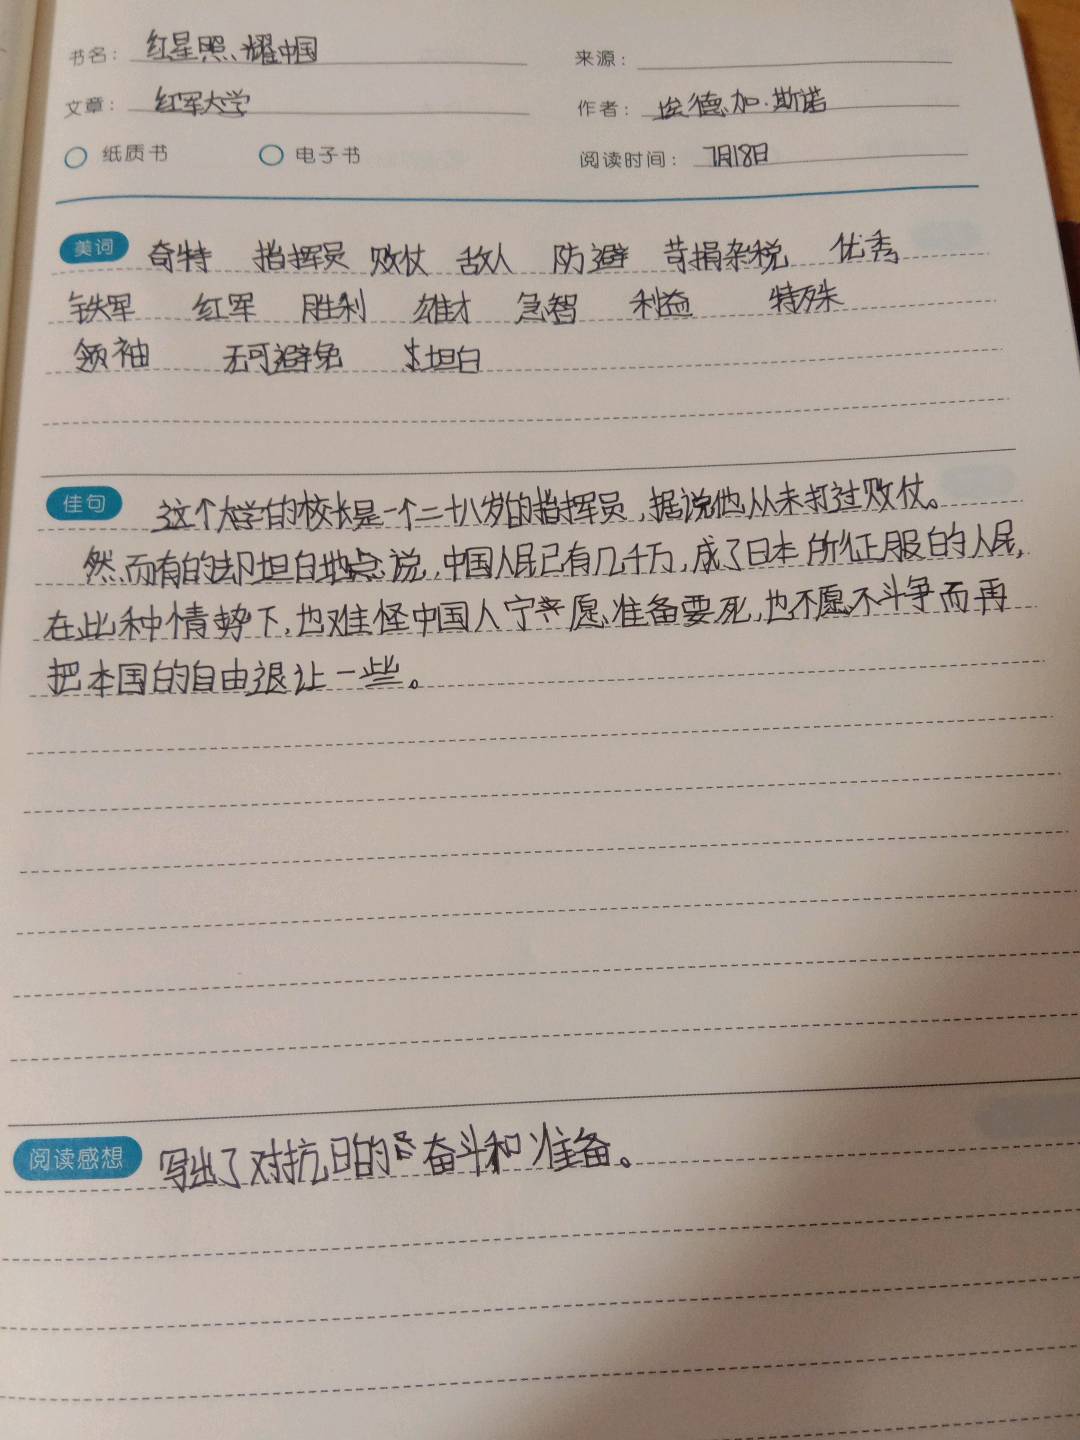 书名： 红星照耀中国 来源：
文章： 红军大学 作者： 埃德加·斯诺
纸质书 电子书 阅读时间： 7月18日
美词 奇特 指挥员 败仗 敌人 防避 苛捐杂税 优秀
铁军 红军 胜利 雄才 急智 利益 特殊
领袖 无可避免 坦白
佳句 这个大学的校长是一个二十八岁的指挥员,据说他从未打过败仗。
然而有的却坦白地点说,中国人民已有几千万,成了日本所征服的人民,
在此种情势下,也难怪中国人宁愿准备要死,也不愿不斗争而再
把本国的自由退让一些。
阅读感想 写出了对抗日的奋斗和准备。